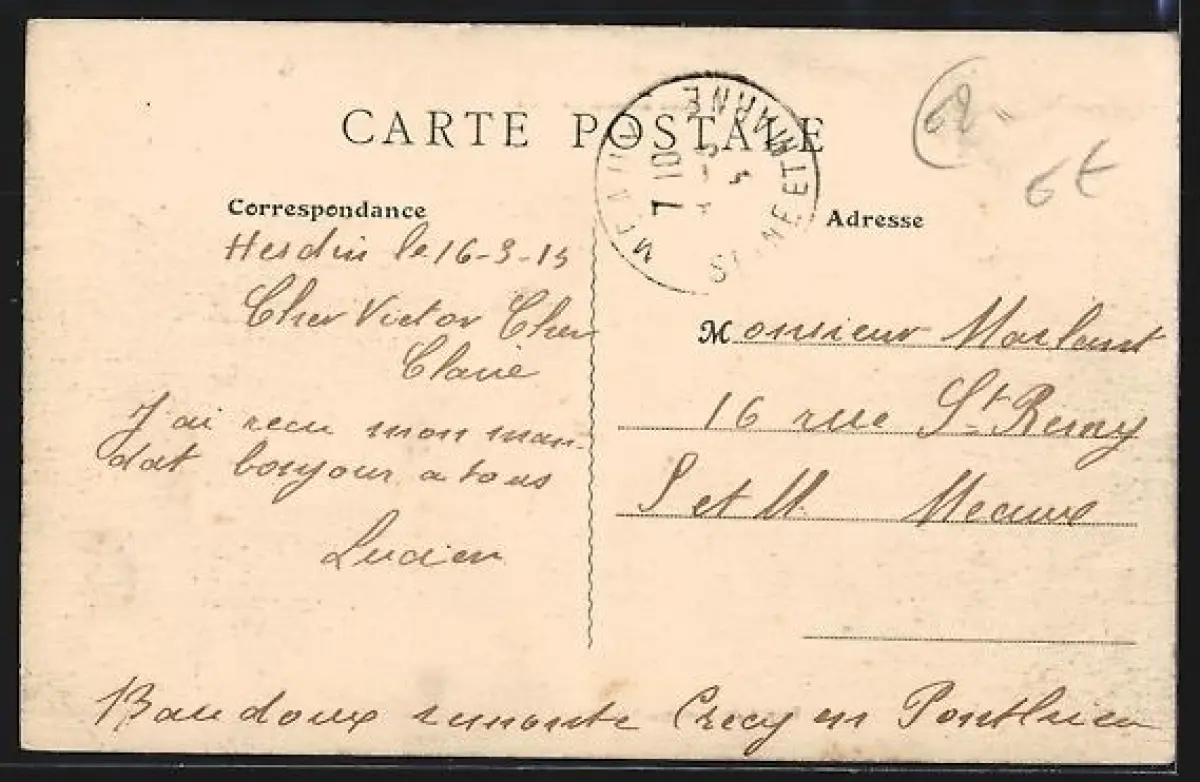 CARTE POSTALE
62
6€
MEAUX
7 10
SEINE ET MARNE
Correspondance
Hesdin le 16-3-15
Cher Victor Cher
Claire
J'ai recu mon man-
dat bonjour a tous
Lucien
Adresse
Monsieur Marlant
16 rue St Remy
S et M. Meaux
Baudoux remonte Crecy en Ponthieu